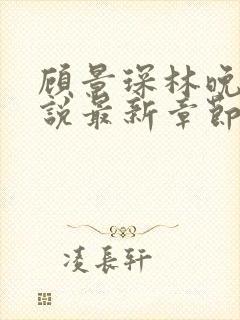 顾景琛林晚
說最新章節
凌長軒